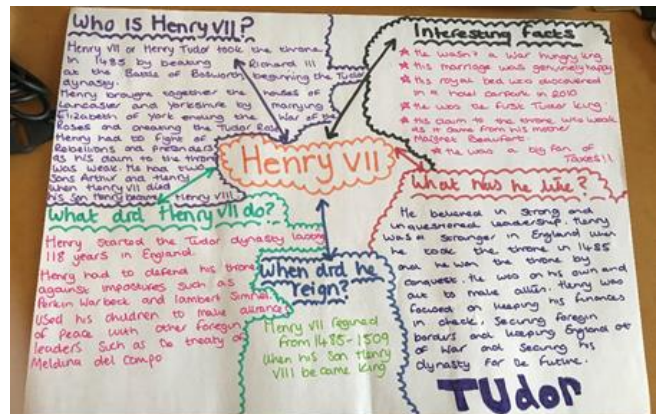 Who is Henry VII?
Henry VII or Henry Tudor took the throne
in 1485 by beating Richard III
at the Battle of Bosworth beginning the Tudor
dynasty.
Henry brought together the houses of
Lancaster and Yorkshire by marrying
Elizabeth of York ending the War of the
Roses and creating the Tudor Rose
Henry had to fight of
Rebellions and Pretenders
as his claim to the throne
was weak. He had two
Sons Arthur and Henry
When Henry VII died
his Son Henry became Henry VIII
Interesting Facts
He wasn't a War hungry king
His marriage was genuinely happy
His royal bed was discovered
in a hotel carpark in 2010
He was the first Tudor king.
His claim to the throne was weak
as it came from his mother
Margret Beaufort.
He was a big fan of
Taxes!!
Henry VII
What did Henry VII do?
Henry Started the Tudor dynasty lasting
118 years in England.
Henry had to defend his throne
against impostures such as
Perkin Warbeck and lambert Simnel.
Used his children to make alliances
of peace with other foregin
leaders Such as the treaty of
Meldina del Campo
When did he
reign?
Henry VII regined
from 1485-1509
When his Son Henry
VIII became king
What was he like?
He believed in Strong and
unquestioned leadership. Henry
was a Stranger in England when
he took the throne in 1485
and he won the throne by
conquest. He was on his own and
out to make allies. Henry was
focused on keeping his finances
in check, Securing foregin
borders and keeping England out
of War and Securing his
dynasty for the future.
TUdor